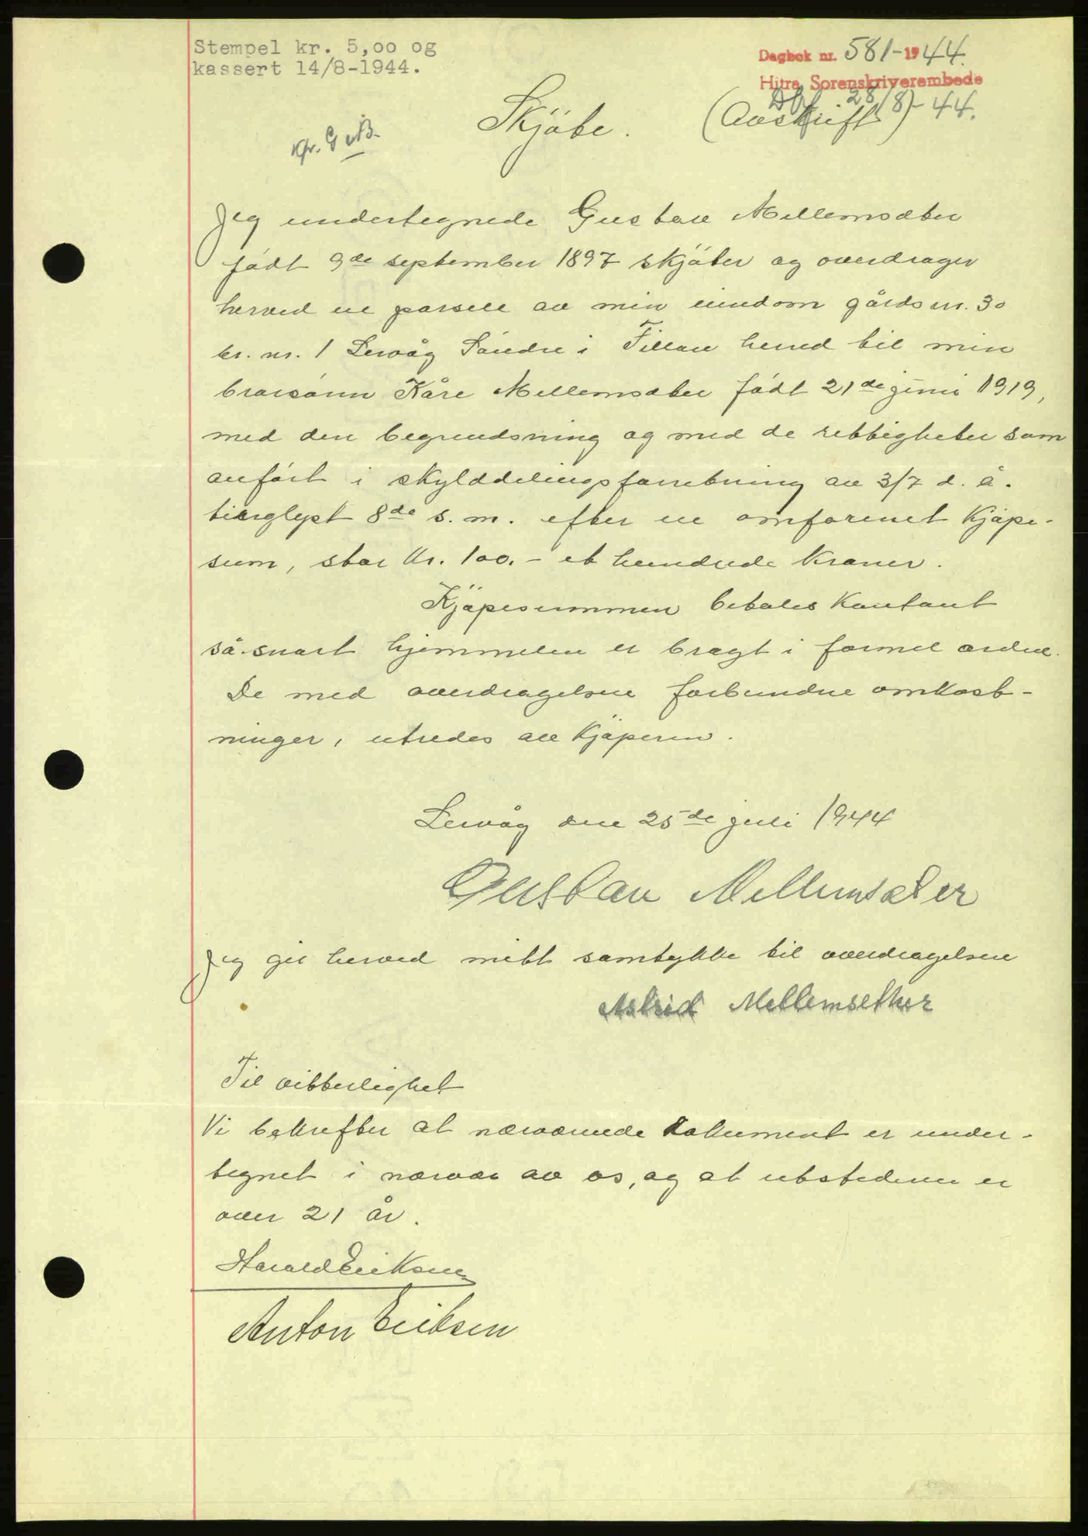 Stempel kr. 5,00 og
kassert 14/8-1944.
Dagbok nr. 581-1944.
Hitra Sorenskriverembede
Dbf 28/8-44.
Skjöte. (Avskrift)
Kfr. G &B.
Jeg undertegnede Gustav Mellemsæter
født 9de september 1897 skjöter og overdrager
herved en parsell av min eiendom gårdsnr. 30
br. nr. 1 Lervåg Söndre i Fillan herred til min
brorsönn Kåre Mellemsæter født 21de juni 1919,
med den begrensdning og med de rettigheter som
anført i skylddelingsforretning av 3/7 d. å.
tinglyst 8de s. m. efter en omforenet kjöpe-
sum, stor Kr. 100.- et hundrede kroner.
Kjöpesummen betales kontant
så snart hjemmelen er bragt i formel orden.
De med overdragelsen forbundne omkost-
ninger, utredes av kjöperen.
Lervåg den 25de juli 1944
Gustav Mellemsæter
Jeg gir herved mitt samtykke til overdragelsen
Astrid Mellemsether
Til vitterlighet
Vi bekrefter at nærværende dokument er under-
tegnet i nærvær av os, og at utstederen er
over 21 år.
Harald Eriksen
Anton Eriksen